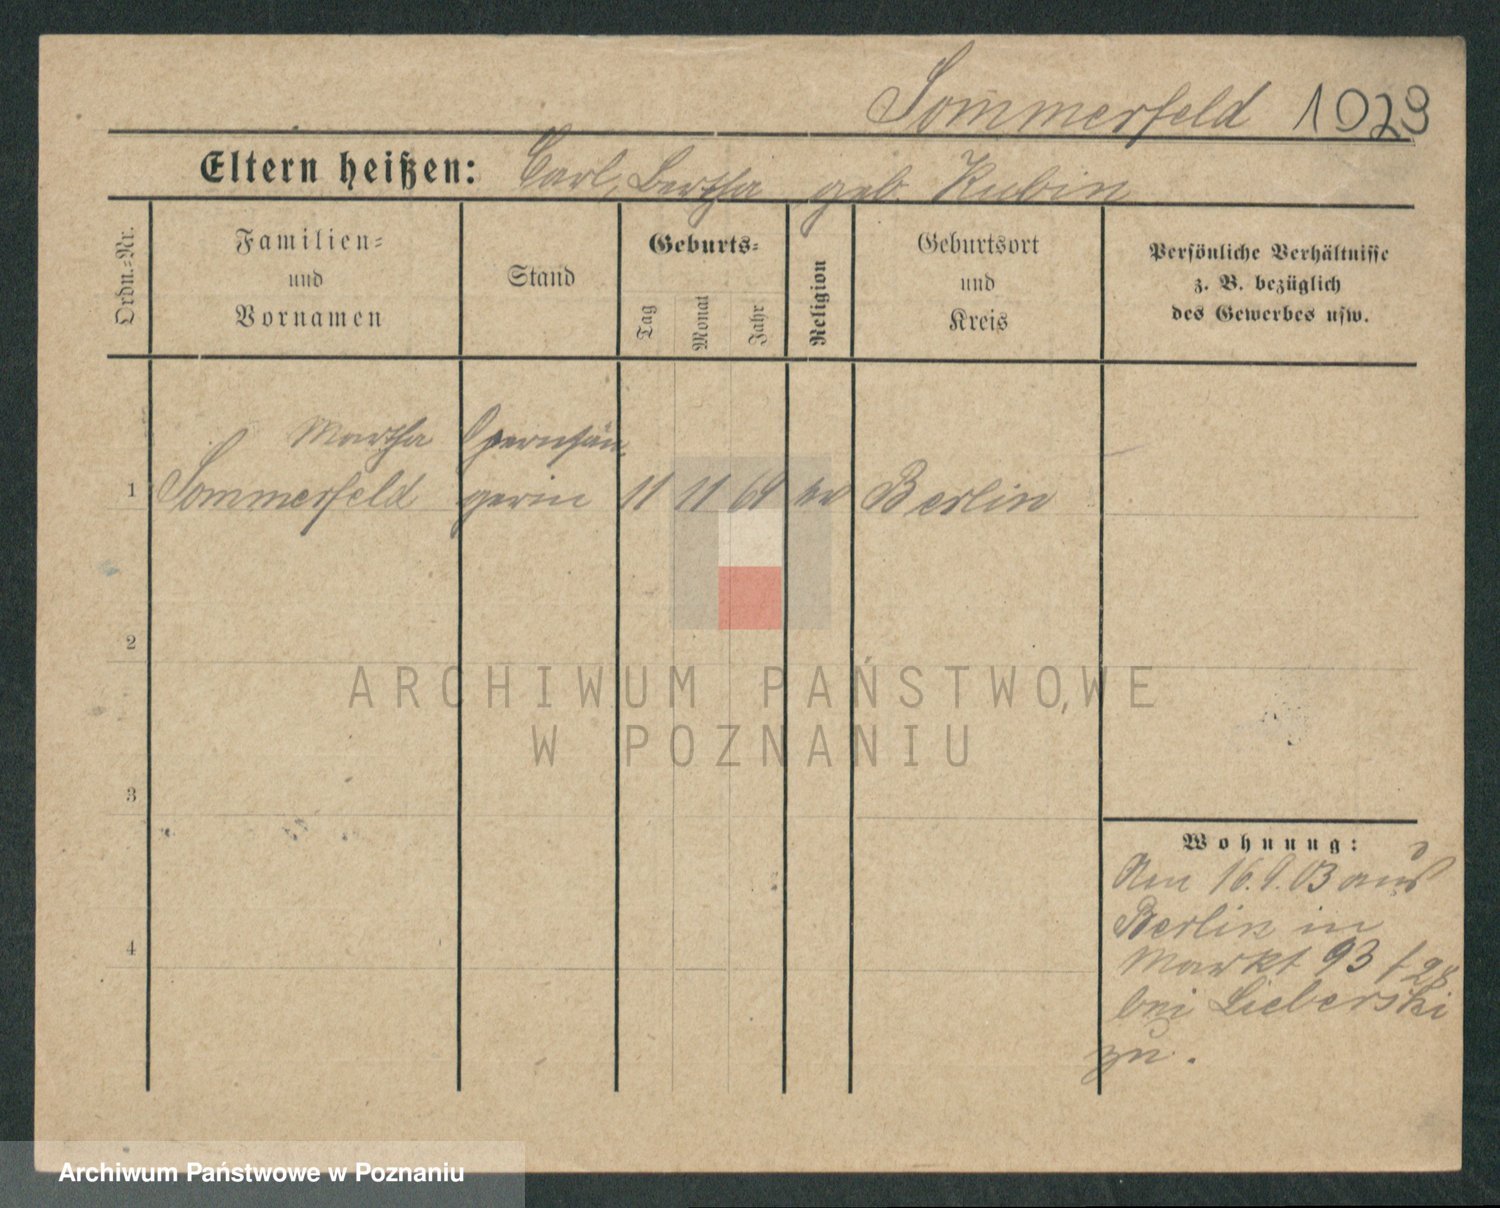 Sommerfeld 1023
Eltern heißen: Carl, Bertha geb. Rubin
Ordn.-Nr.
Familien-
und
Vornamen
Stand
Geburts-
Tag
Monat
Jahr
Religion
Geburtsort
und
Kreis
Persönliche Verhältnisse
z. B. bezüglich
des Gewerbes usw.
Martha Opernsän
1 Sommerfeld gerin 11 11 69 ev Berlin
2
3
4
Wohnung:
Am 16.9.03 aus
Berlin in
Markt 93
bei Lieberski
zu.
ARCHIWUM PAŃSTWOWE
W POZNANIU
Archiwum Państwowe w Poznaniu